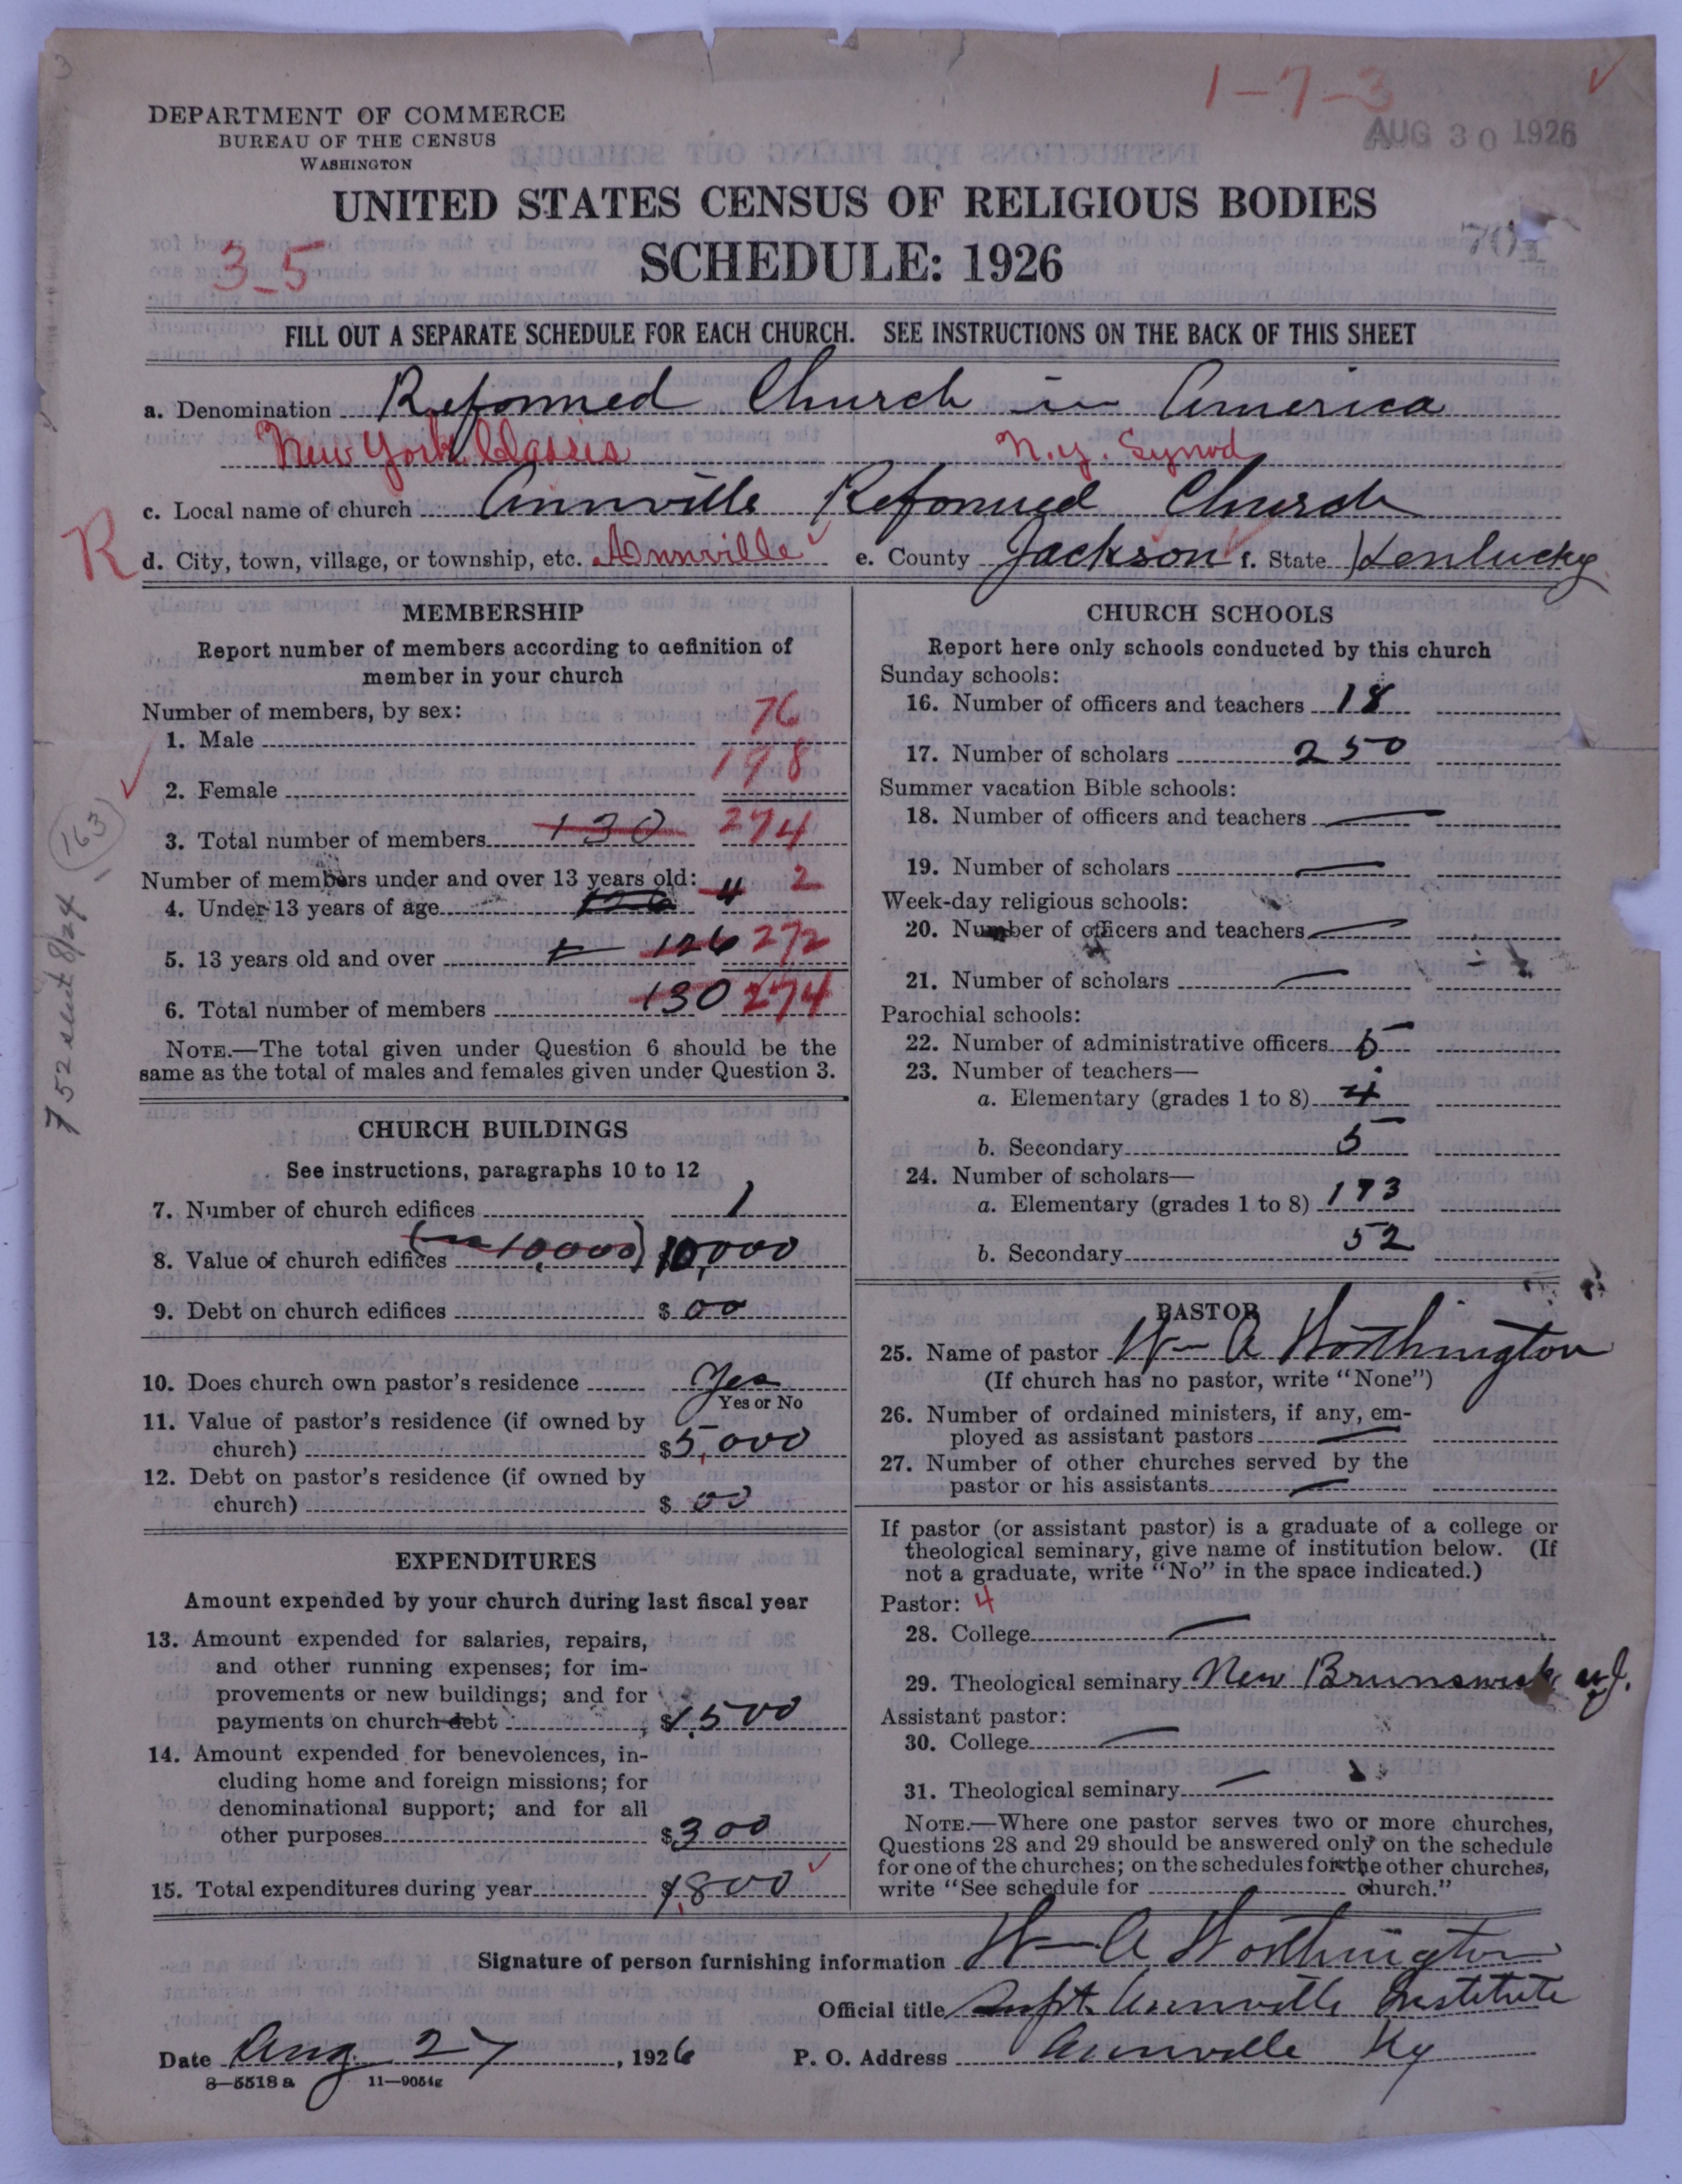 1-7-3
DEPARTMENT OF COMMERCE
BUREAU OF THE CENSUS
WASHINGTON
AUG 30 1926
UNITED STATES CENSUS OF RELIGIOUS BODIES
3-5
SCHEDULE: 1926
FILL OUT A SEPARATE SCHEDULE FOR EACH CHURCH. SEE INSTRUCTIONS ON THE BACK OF THIS SHEET
a. Denomination Reformed Church in America
New York Classis N.Y. Synod
c. Local name of church Annville Reformed Church
R d. City, town, village, or township, etc. Annville e. County Jackson f. State Kentucky
MEMBERSHIP
Report number of members according to definition of
member in your church
Number of members, by sex:
1. Male 76
2. Female 198
3. Total number of members 130 274
Number of members under and over 13 years old:
4. Under 13 years of age 4 2
5. 13 years old and over 126 272
6. Total number of members 130 274
NOTE.—The total given under Question 6 should be the
same as the total of males and females given under Question 3.
163
752 sent 8/24
CHURCH BUILDINGS
See instructions, paragraphs 10 to 12
7. Number of church edifices 1
8. Value of church edifices 10,000) 10,000
9. Debt on church edifices $ 00
10. Does church own pastor's residence Yes
Yes or No
11. Value of pastor's residence (if owned by
church) $5,000
12. Debt on pastor's residence (if owned by
church) $ 00
EXPENDITURES
Amount expended by your church during last fiscal year
13. Amount expended for salaries, repairs,
and other running expenses; for im-
provements or new buildings; and for
payments on church debt $1,500
14. Amount expended for benevolences, in-
cluding home and foreign missions; for
denominational support; and for all
other purposes $300
15. Total expenditures during year $1,800
CHURCH SCHOOLS
Report here only schools conducted by this church
Sunday schools:
16. Number of officers and teachers 18
17. Number of scholars 250
Summer vacation Bible schools:
18. Number of officers and teachers —
19. Number of scholars —
Week-day religious schools:
20. Number of officers and teachers —
21. Number of scholars —
Parochial schools:
22. Number of administrative officers
23. Number of teachers—
a. Elementary (grades 1 to 8) 4
b. Secondary 5
24. Number of scholars—
a. Elementary (grades 1 to 8) 193
b. Secondary 52
PASTOR
25. Name of pastor Wm A Worthington
(If church has no pastor, write "None")
26. Number of ordained ministers, if any, em-
ployed as assistant pastors —
27. Number of other churches served by the
pastor or his assistants —
If pastor (or assistant pastor) is a graduate of a college or
theological seminary, give name of institution below. (If
not a graduate, write "No" in the space indicated.)
Pastor: 4
28. College —
29. Theological seminary New Brunswick N.J.
Assistant pastor:
30. College —
31. Theological seminary —
NOTE.—Where one pastor serves two or more churches,
Questions 28 and 29 should be answered only on the schedule
for one of the churches; on the schedules for the other churches,
write "See schedule for church."
Signature of person furnishing information Wm A Worthington
Official title Supt. Annville Institute
Date Aug 27, 1926 P. O. Address Annville Ky
8—5518a 11—9054g